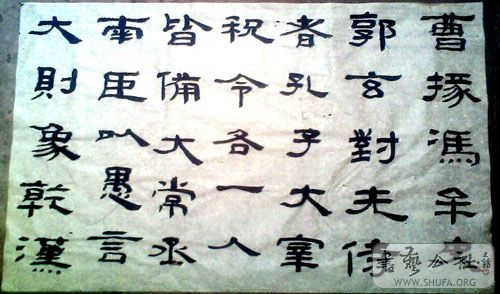 曹掾馮牟
郭玄對先侍
者孔子大宰
祝令各一人
皆備大常丞
南臣以愚言
大則象乾漢
書藝公社
WWW.SHUFA.ORG